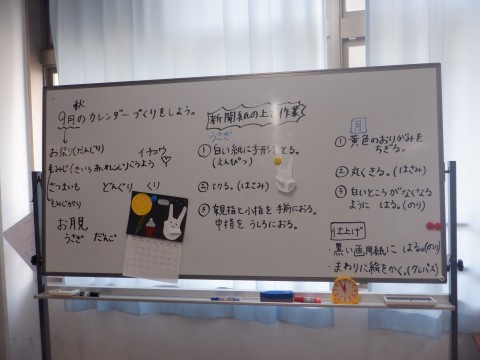 秋
9月のカレンダーづくりをしよう。
お祭り(だんじり) イチョウ
もみじ(きいろ,赤,オレンジ)こうよう
さつまいも どんぐり くり
もみじがり
お月見
うさぎ だんご
新聞紙の上で作業
うさぎ
① 白い紙に手形をとる。
(えんぴつ)
② 切る。(はさみ)
③ 親指と小指を手前におる。
中指をうしろにおる。
月
① 黄色のおりがみを
ちぎる。
② 丸くきる。(はさみ)
③ 白いところがなくなる
ように はる。(のり)
仕上げ
・黒い画用紙に はる。(のり)
・まわりに絵をかく。(クレパス)